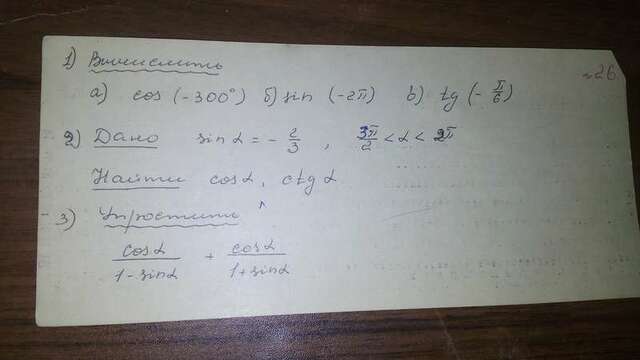 №26
1) Вычислить
а) cos (-300°) б) sin (-2π) в) tg (-π/6)
2) Дано sin α = - 2/3 , 3π/2 < α < 2π
Найти cos α, ctg α
3) Упростить
cos α / 1 - sin α + cos α / 1 + sin α